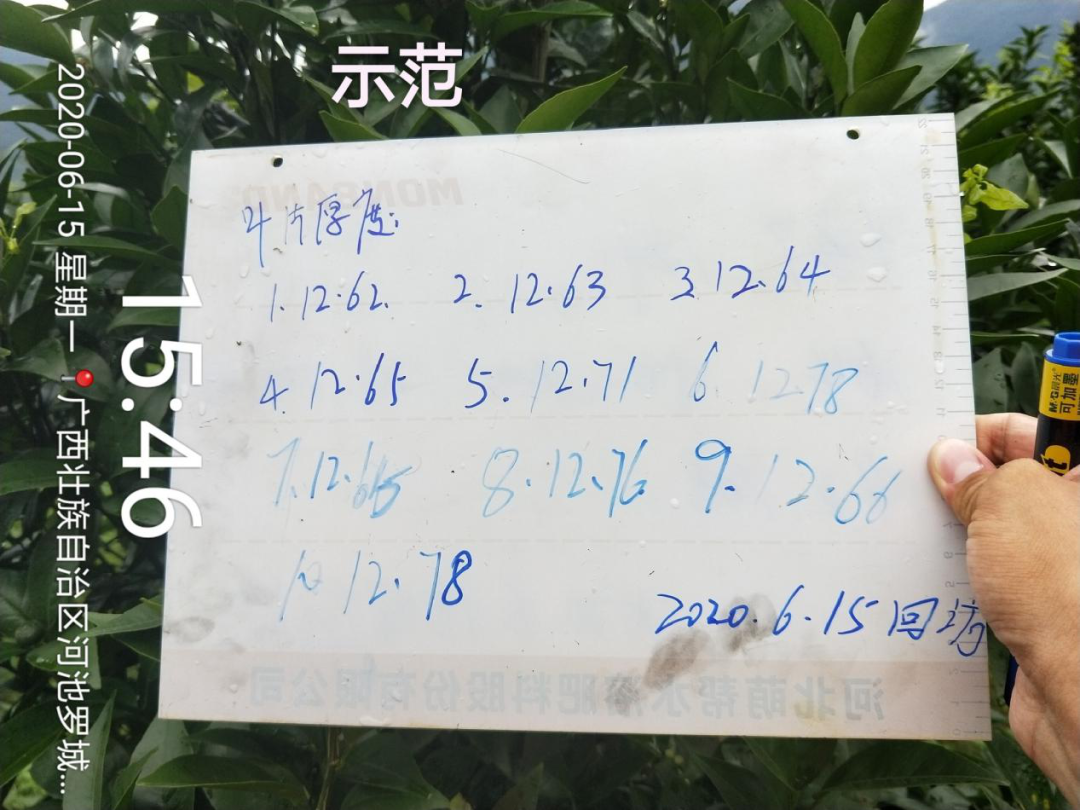 示范
2020-06-15 星期一 广西壮族自治区河池罗城...
15:46
MONBAND
叶片厚度:
1. 12.62. 2. 12.63 3. 12.64
4. 12.65 5. 12.71 6. 12.78
7. 12.65 8. 12.76 9. 12.66
10 12.78
2020.6.15 回访
河北萌帮水溶肥料股份有限公司
M&G晨光
可加墨